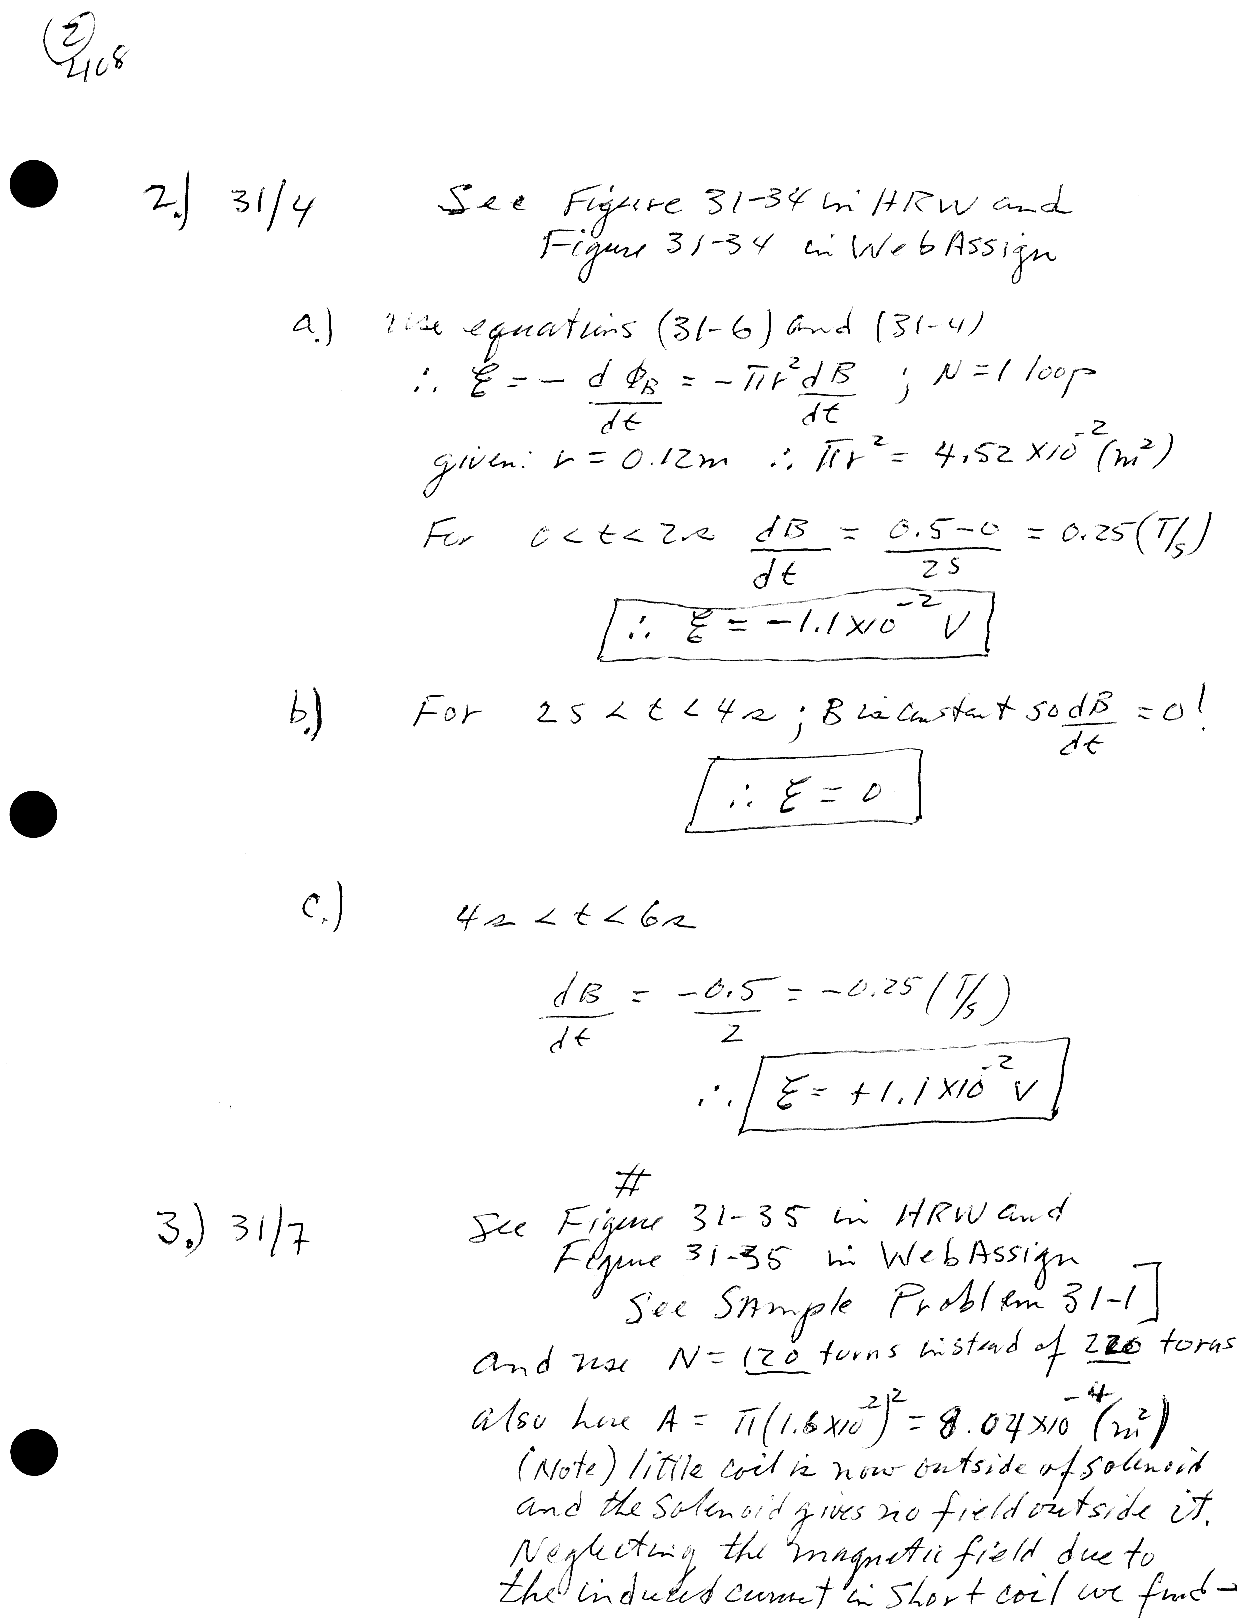 2
408
2.) 31/4 See Figure 31-34 in HRW and
Figure 31-34 in WebAssign
a.) Use equations (31-6) and (31-4)
∴ ℰ = - dΦ_B/dt = - πr² dB/dt ; N = 1 loop
given: r = 0.12m ∴ πr² = 4.52 x 10⁻² (m²)
For 0 < t < 2s dB/dt = (0.5-0)/2s = 0.25 (T/s)
∴ ℰ = -1.1 x 10⁻² V
b.) For 2s < t < 4s ; B is constant so dB/dt = 0!
∴ ℰ = 0
c.) 4s < t < 6s
dB/dt = -0.5/2 = -0.25 (T/s)
∴ ℰ = +1.1 x 10⁻² V
#
3.) 31/7 See Figure 31-35 in HRW and
Figure 31-35 in WebAssign
See Sample Problem 31-1]
and use N = 120 turns instead of 220 turns
also here A = π(1.6x10⁻²)² = 8.04 x 10⁻⁴ (m²)
(Note) little coil is now outside of solenoid
and the solenoid gives no field outside it.
Neglecting the magnetic field due to
the induced current in short coil we find -